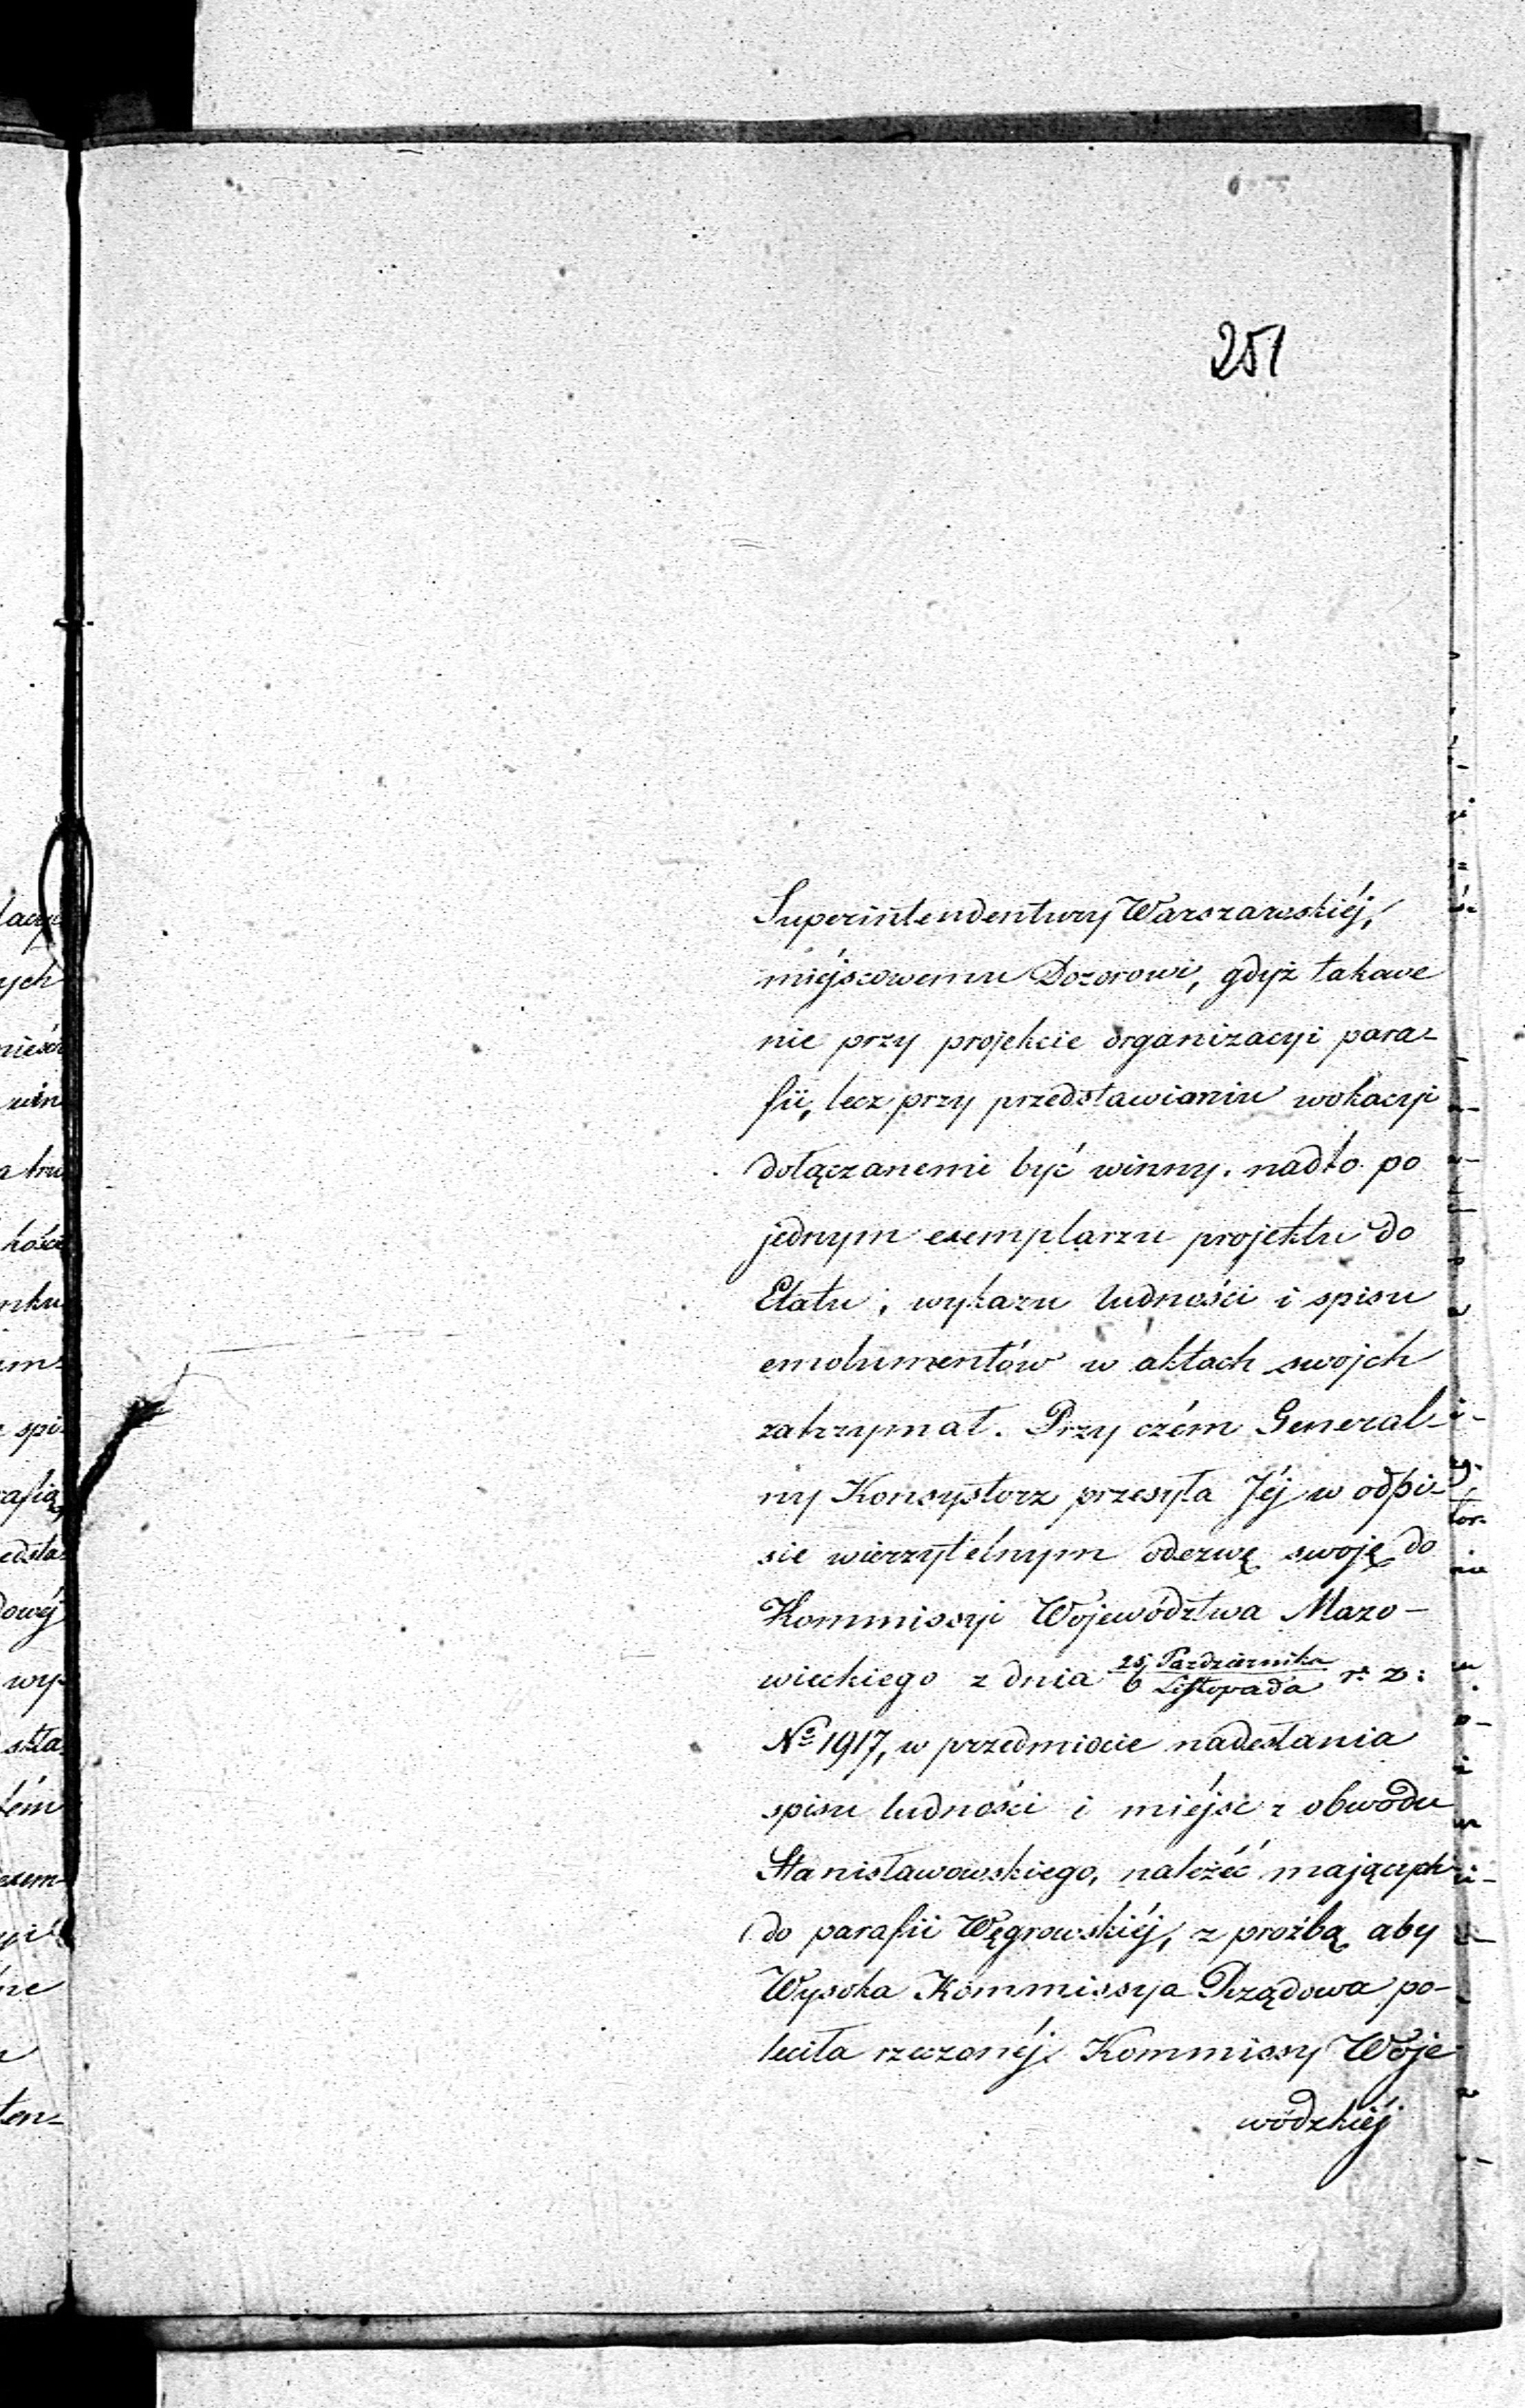 251
Superintendentury Warszawskiéj,
miéjscowemu Dozorowi, gdyż takowe
nie przy projekcie organizacyi para-
fii, lecz przy przedstawianiu wokacyi
dołączanemi być winny. nadto po
jednym exemplarzu projektu do
Etatu, wykazu ludności i spisu
emolumentów w aktach swojch
zatrzymał. Przy czém General-
ny Konsystorz przesyła Jéj w odpi-
sie wierzytelnym odezwę swoję do
Kommissyi Województwa Mazo-
wieckiego z dnia 25 Października / 6 Listopada r. z:
No 1917, w przedmiocie nadesłania
spisu ludności i miéjsc z obwodu
Stanisławowskiego, należéć mających
do parafii Węgrowskiéj, z prożbą aby
Wysoka Kommissya Rządowa po-
leciła rzeczonéj Kommissy Woje
wódzkiéj